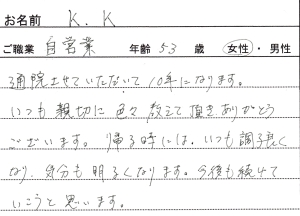 お名前 K.K
ご職業 自営業 年齢 53 歳 女性・男性
通院させていただいて10年になります。
いつも親切に色々教えて頂きありがとう
ございます。帰る時には、いつも調子良く
なり、気分も明るくなります。今後も続けて
いこうと思います。